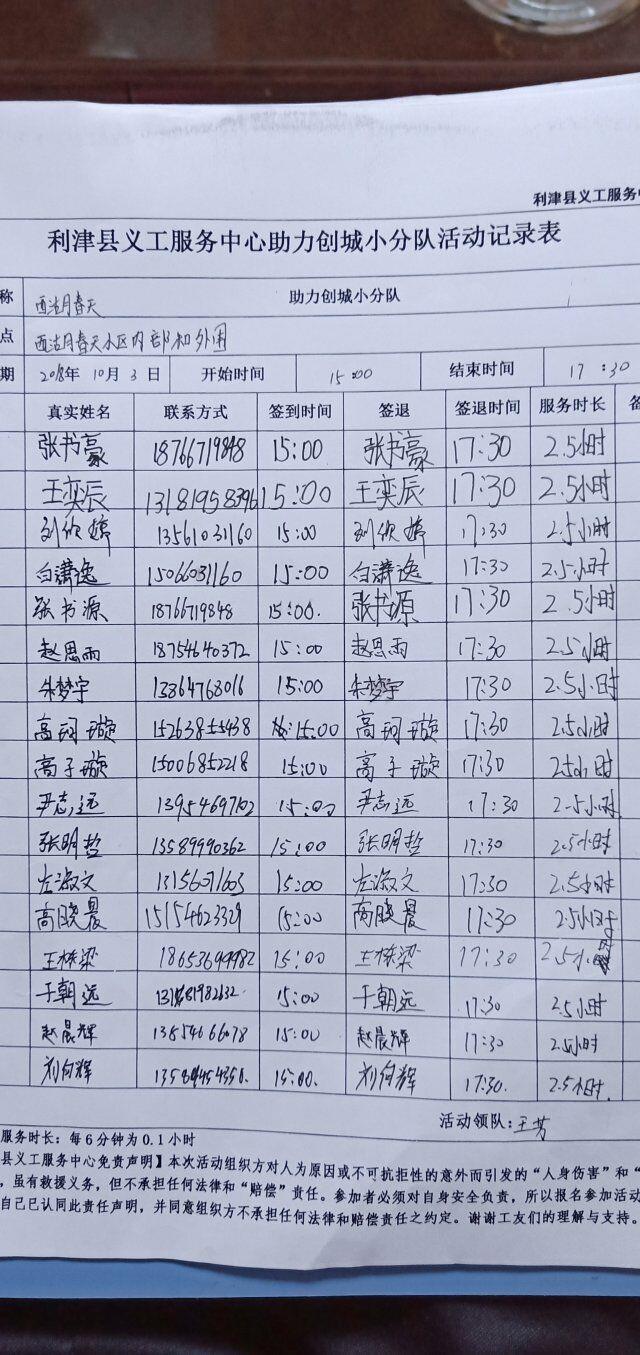 利津县义工服务
利津县义工服务中心助力创城小分队活动记录表
称 西湖春天 助力创城小分队
点 西湖春天小区内部和外围
期 2018年10月3日 开始时间 15:00 结束时间 17:30
真实姓名 联系方式 签到时间 签退 签退时间 服务时长 备
张书豪 18766719848 15:00 张书豪 17:30 2.5小时
王奕辰 13181958396 15:00 王奕辰 17:30 2.5小时
刘欣婷 13561031160 15:00 刘欣婷 17:30 2.5小时
白潇逸 15066031160 15:00 白潇逸 17:30 2.5小时
张书源 18766719848 15:00. 张书源 17:30 2.5小时
赵思雨 18754640372 15:00 赵思雨 17:30 2.5小时
朱梦宇 13864768016 15:00 朱梦宇 17:30 2.5小时
高珂璇 15263855438 15:00 高珂璇 17:30 2.5小时
高子璇 15006852218 15:00 高子璇 17:30 2.5小时
尹志远 13954697102 15:00 尹志远 17:30 2.5小时
张明哲 13589990362 15:00 张明哲 17:30 2.5小时
左淑文 13156071603 15:00 左淑文 17:30 2.5小时
高晓晨 15154623329 15:00 高晓晨 17:30 2.5小时
王栋梁 18653699982 15:00 王栋梁 17:30 2.5小时
于朝远 15:00 于朝远 17:30 2.5小时
赵晨辉 13854666078 15:00 赵晨辉 17:30 2.5小时
刘向辉 15:00. 刘向辉 17:30. 2.5小时.
活动领队:王芳
服务时长:每6分钟为0.1小时
县义工服务中心免责声明】本次活动组织方对人为原因或不可抗拒性的意外而引发的“人身伤害”和“
,虽有救援义务,但不承担任何法律和“赔偿”责任。参加者必须对自身安全负责,所以报名参加活动
自己已认同此责任声明,并同意组织方不承担任何法律和赔偿责任之约定。谢谢工友们的理解与支持。